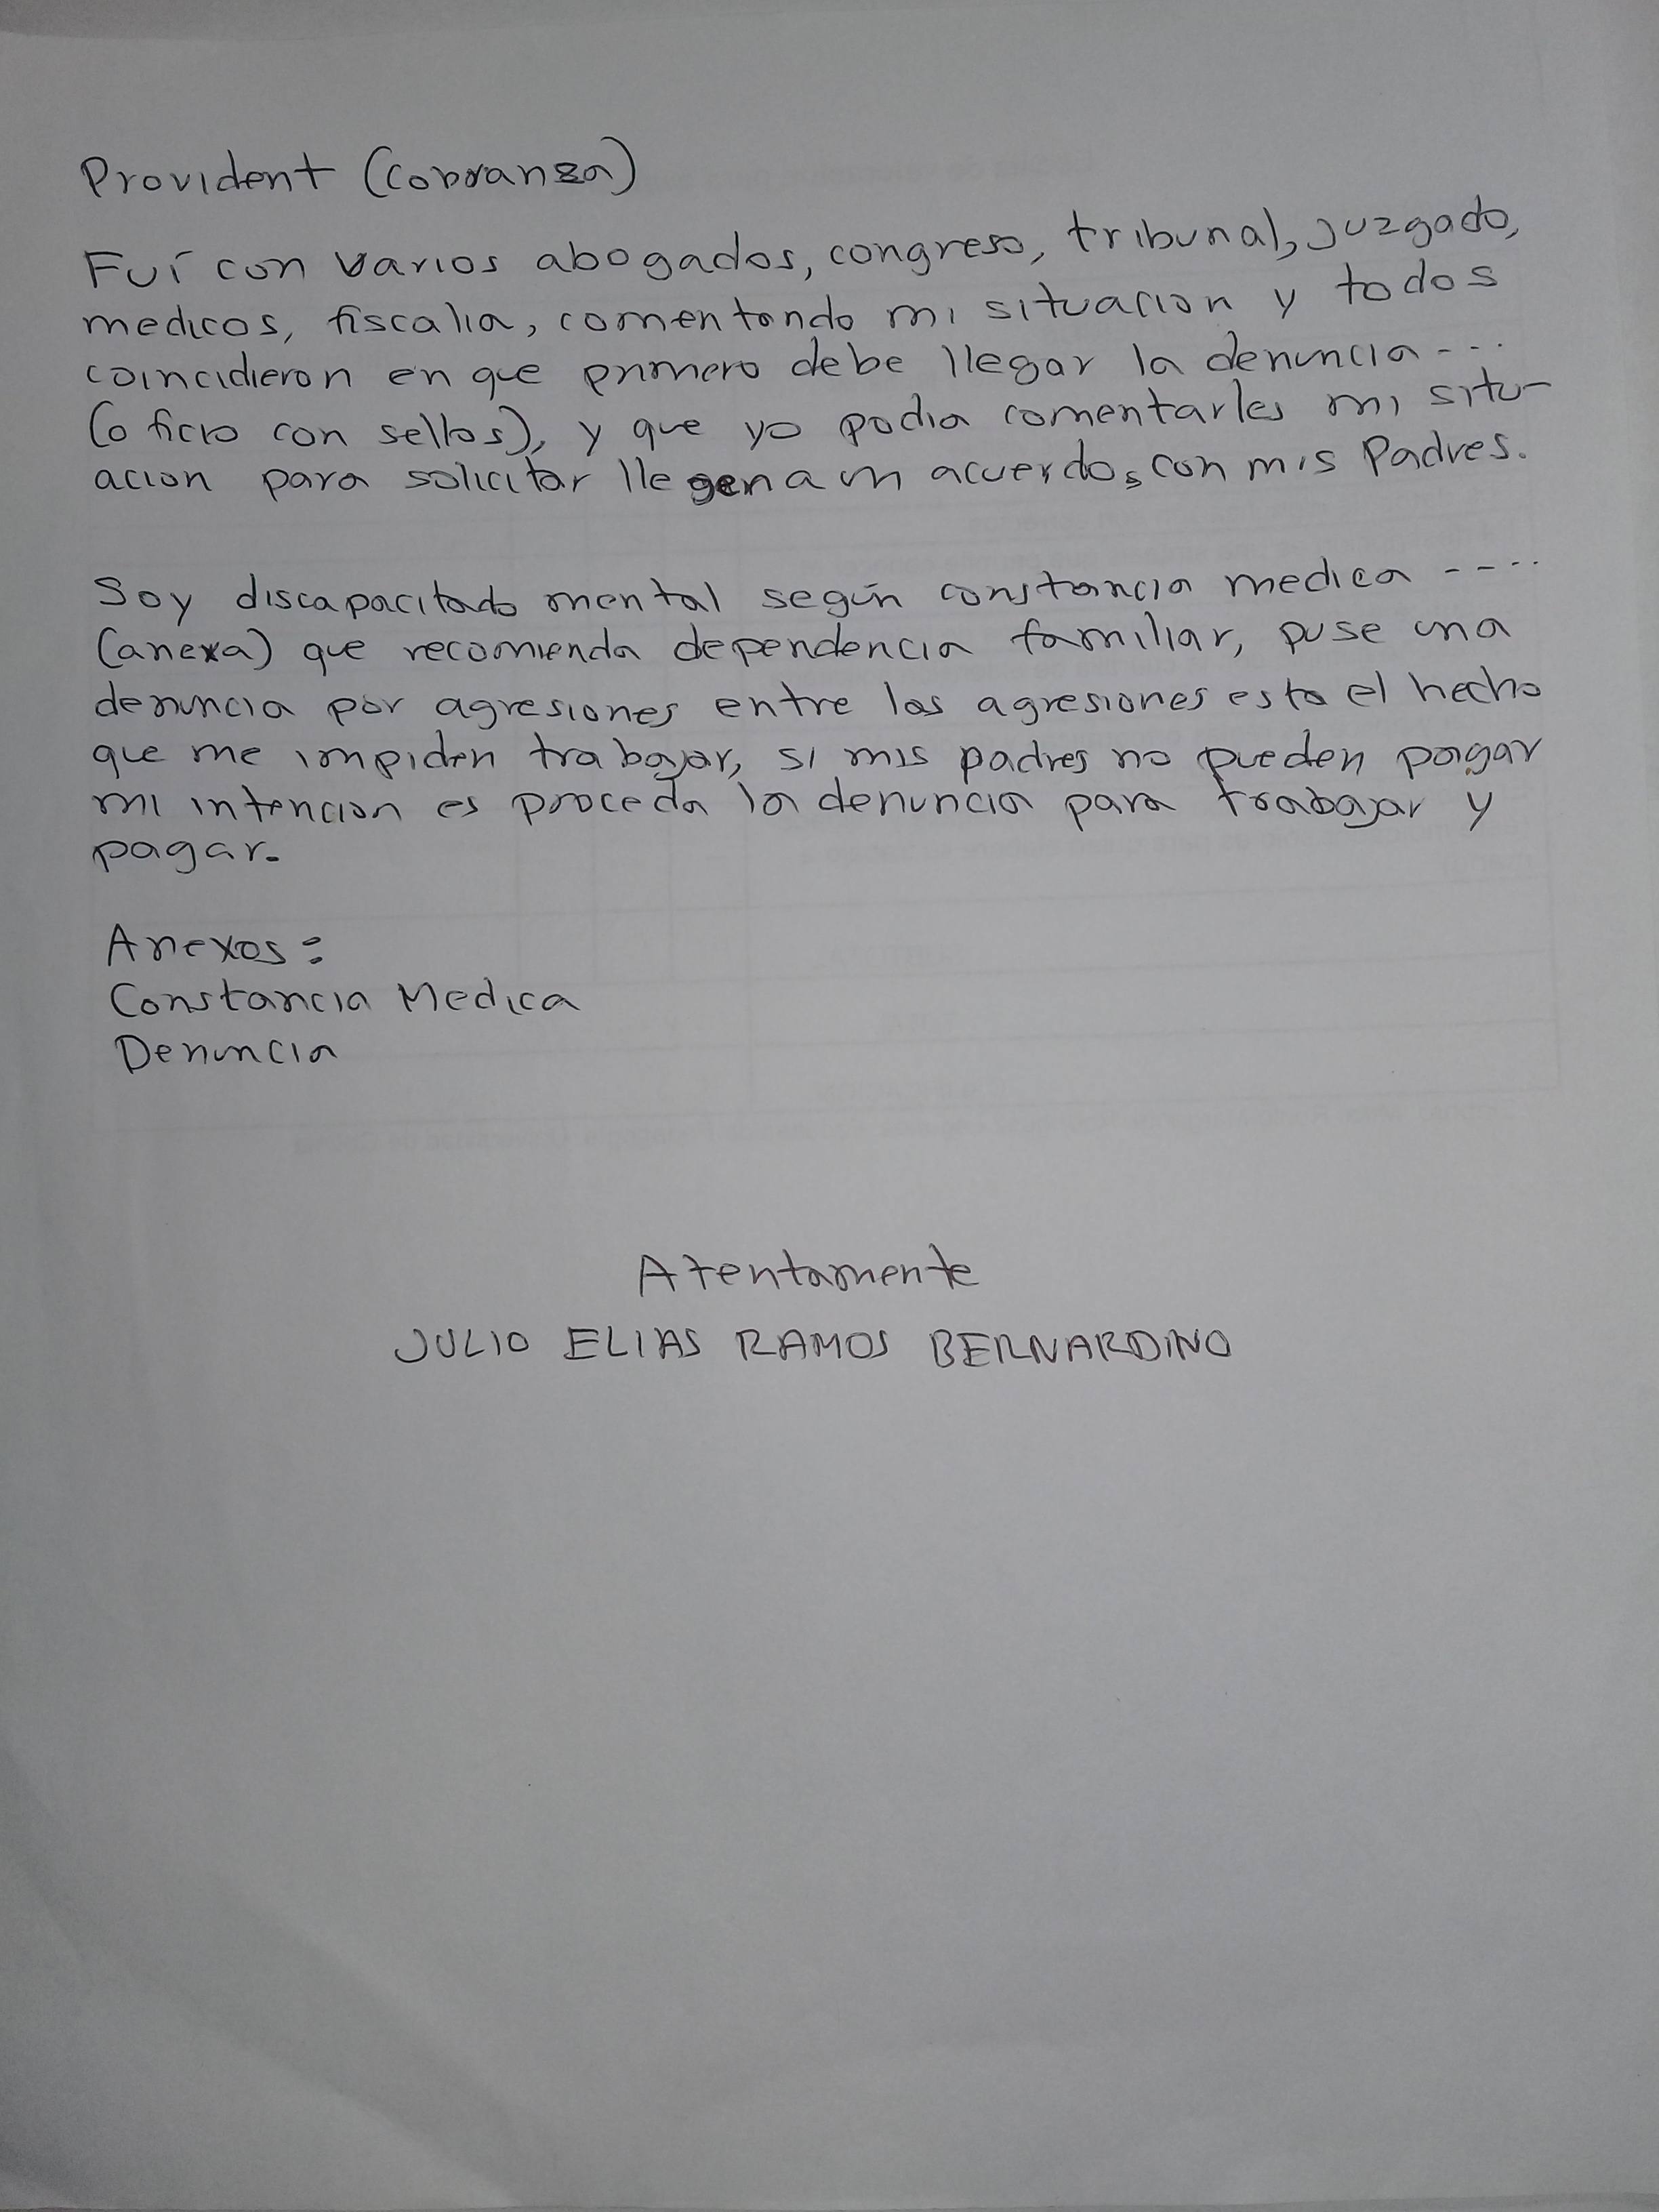 Provident (Cobranza)
Fuí con varios abogados, congreso, tribunal, juzgado,
medicos, fiscalia, comentando mi situacion y todos
coincidieron en que primero debe llegar la denuncia ---
(oficio con sellos), y que yo podia comentarles mi situ-
acion para solicitar llegen a un acuerdo, con mis Padres.
Soy discapacitado mental según constancia medica ----
(anexa) que recomienda dependencia familiar, puse una
denuncia por agresiones entre las agresiones esta el hecho
que me impiden trabajar, si mis padres no pueden pagar
mi intencion es proceda la denuncia para trabajar y
pagar.
Anexos:
Constancia Medica
Denuncia
Atentamente
JULIO ELIAS RAMOS BERNARDINO